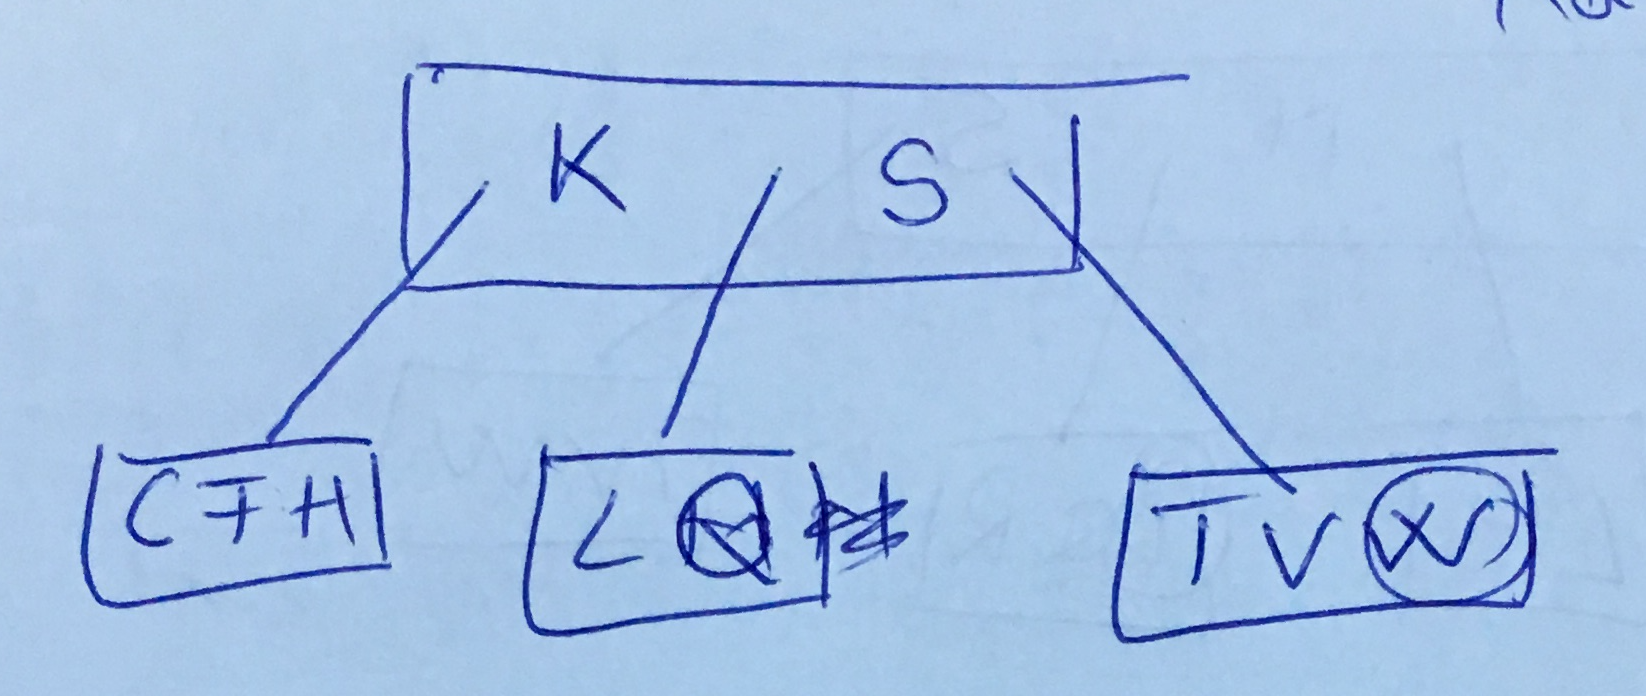 K S
C F H L Q T V W